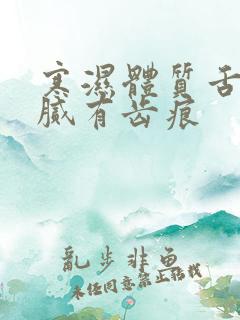 寒濕體質舌
膩有齿痕
亂步非魚
未经同意禁止转载